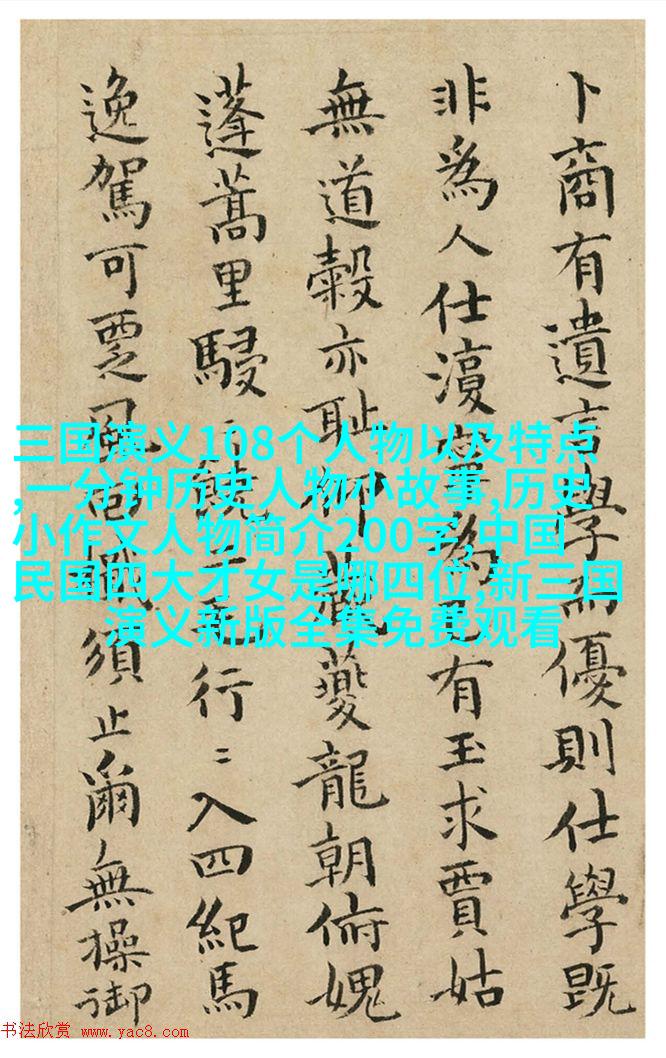 卜商有遺言學而優則仕學既
非為人仕為己有玉求賈姑
無道穀亦恥仰蔑夔龍朝俯媿
蓬蒿里駸〻行〻入四紀馬
逸駕可覂風須止爾無操御
三国演义108个人物以及特点
,一分钟历史人物小故事,历史
小作文人物简介200字,中国
民国四大才女是哪四位,新三国
演义新版全集免费观看
书法欣赏 www.yac8.com